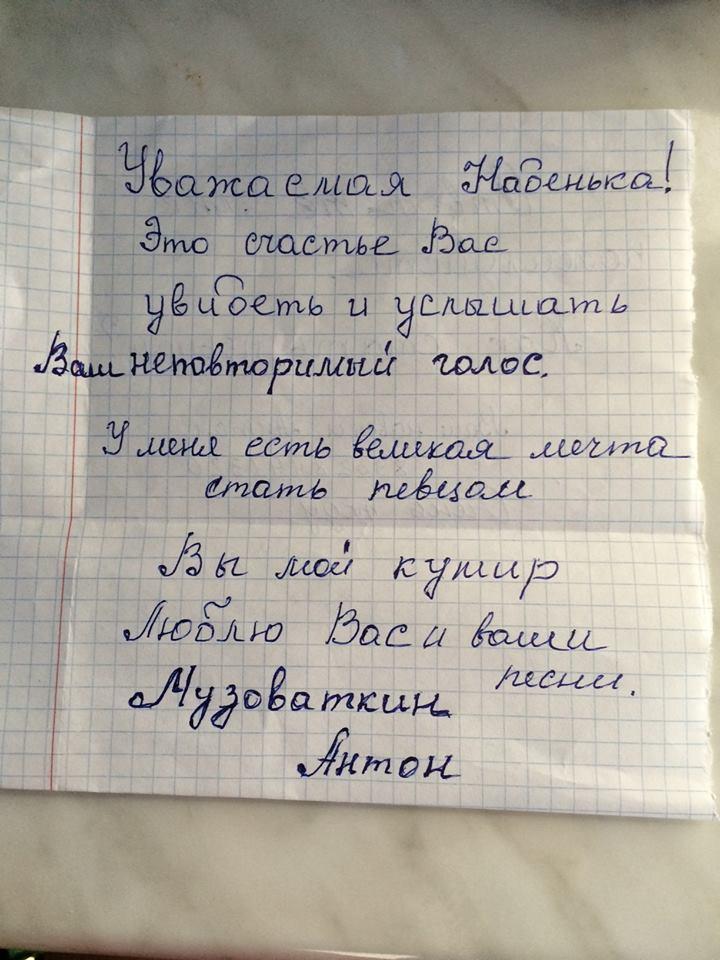 Уважаемая Наденька!
Это счастье Вас
увидеть и услышать
Ваш неповторимый голос.
У меня есть великая мечта
стать певцом
Вы мой кумир
Люблю Вас и ваши
песни.
Музоваткин
Антон